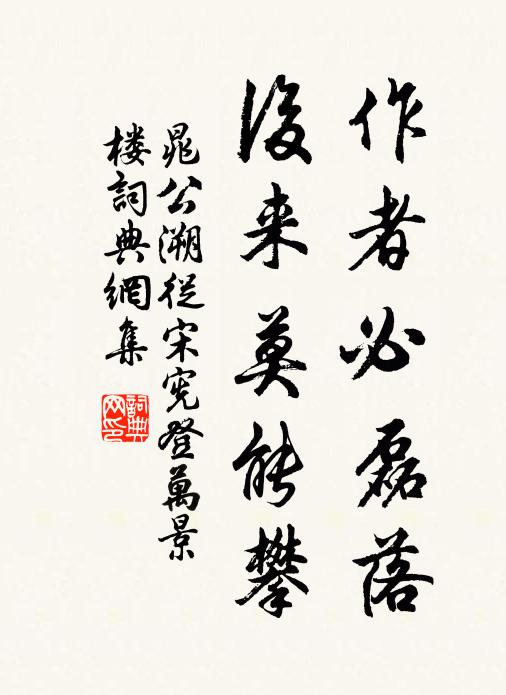 作者必磊落
後来莫能攀
晁公溯從宋憲登萬景
楼詞典網集
詞典网印